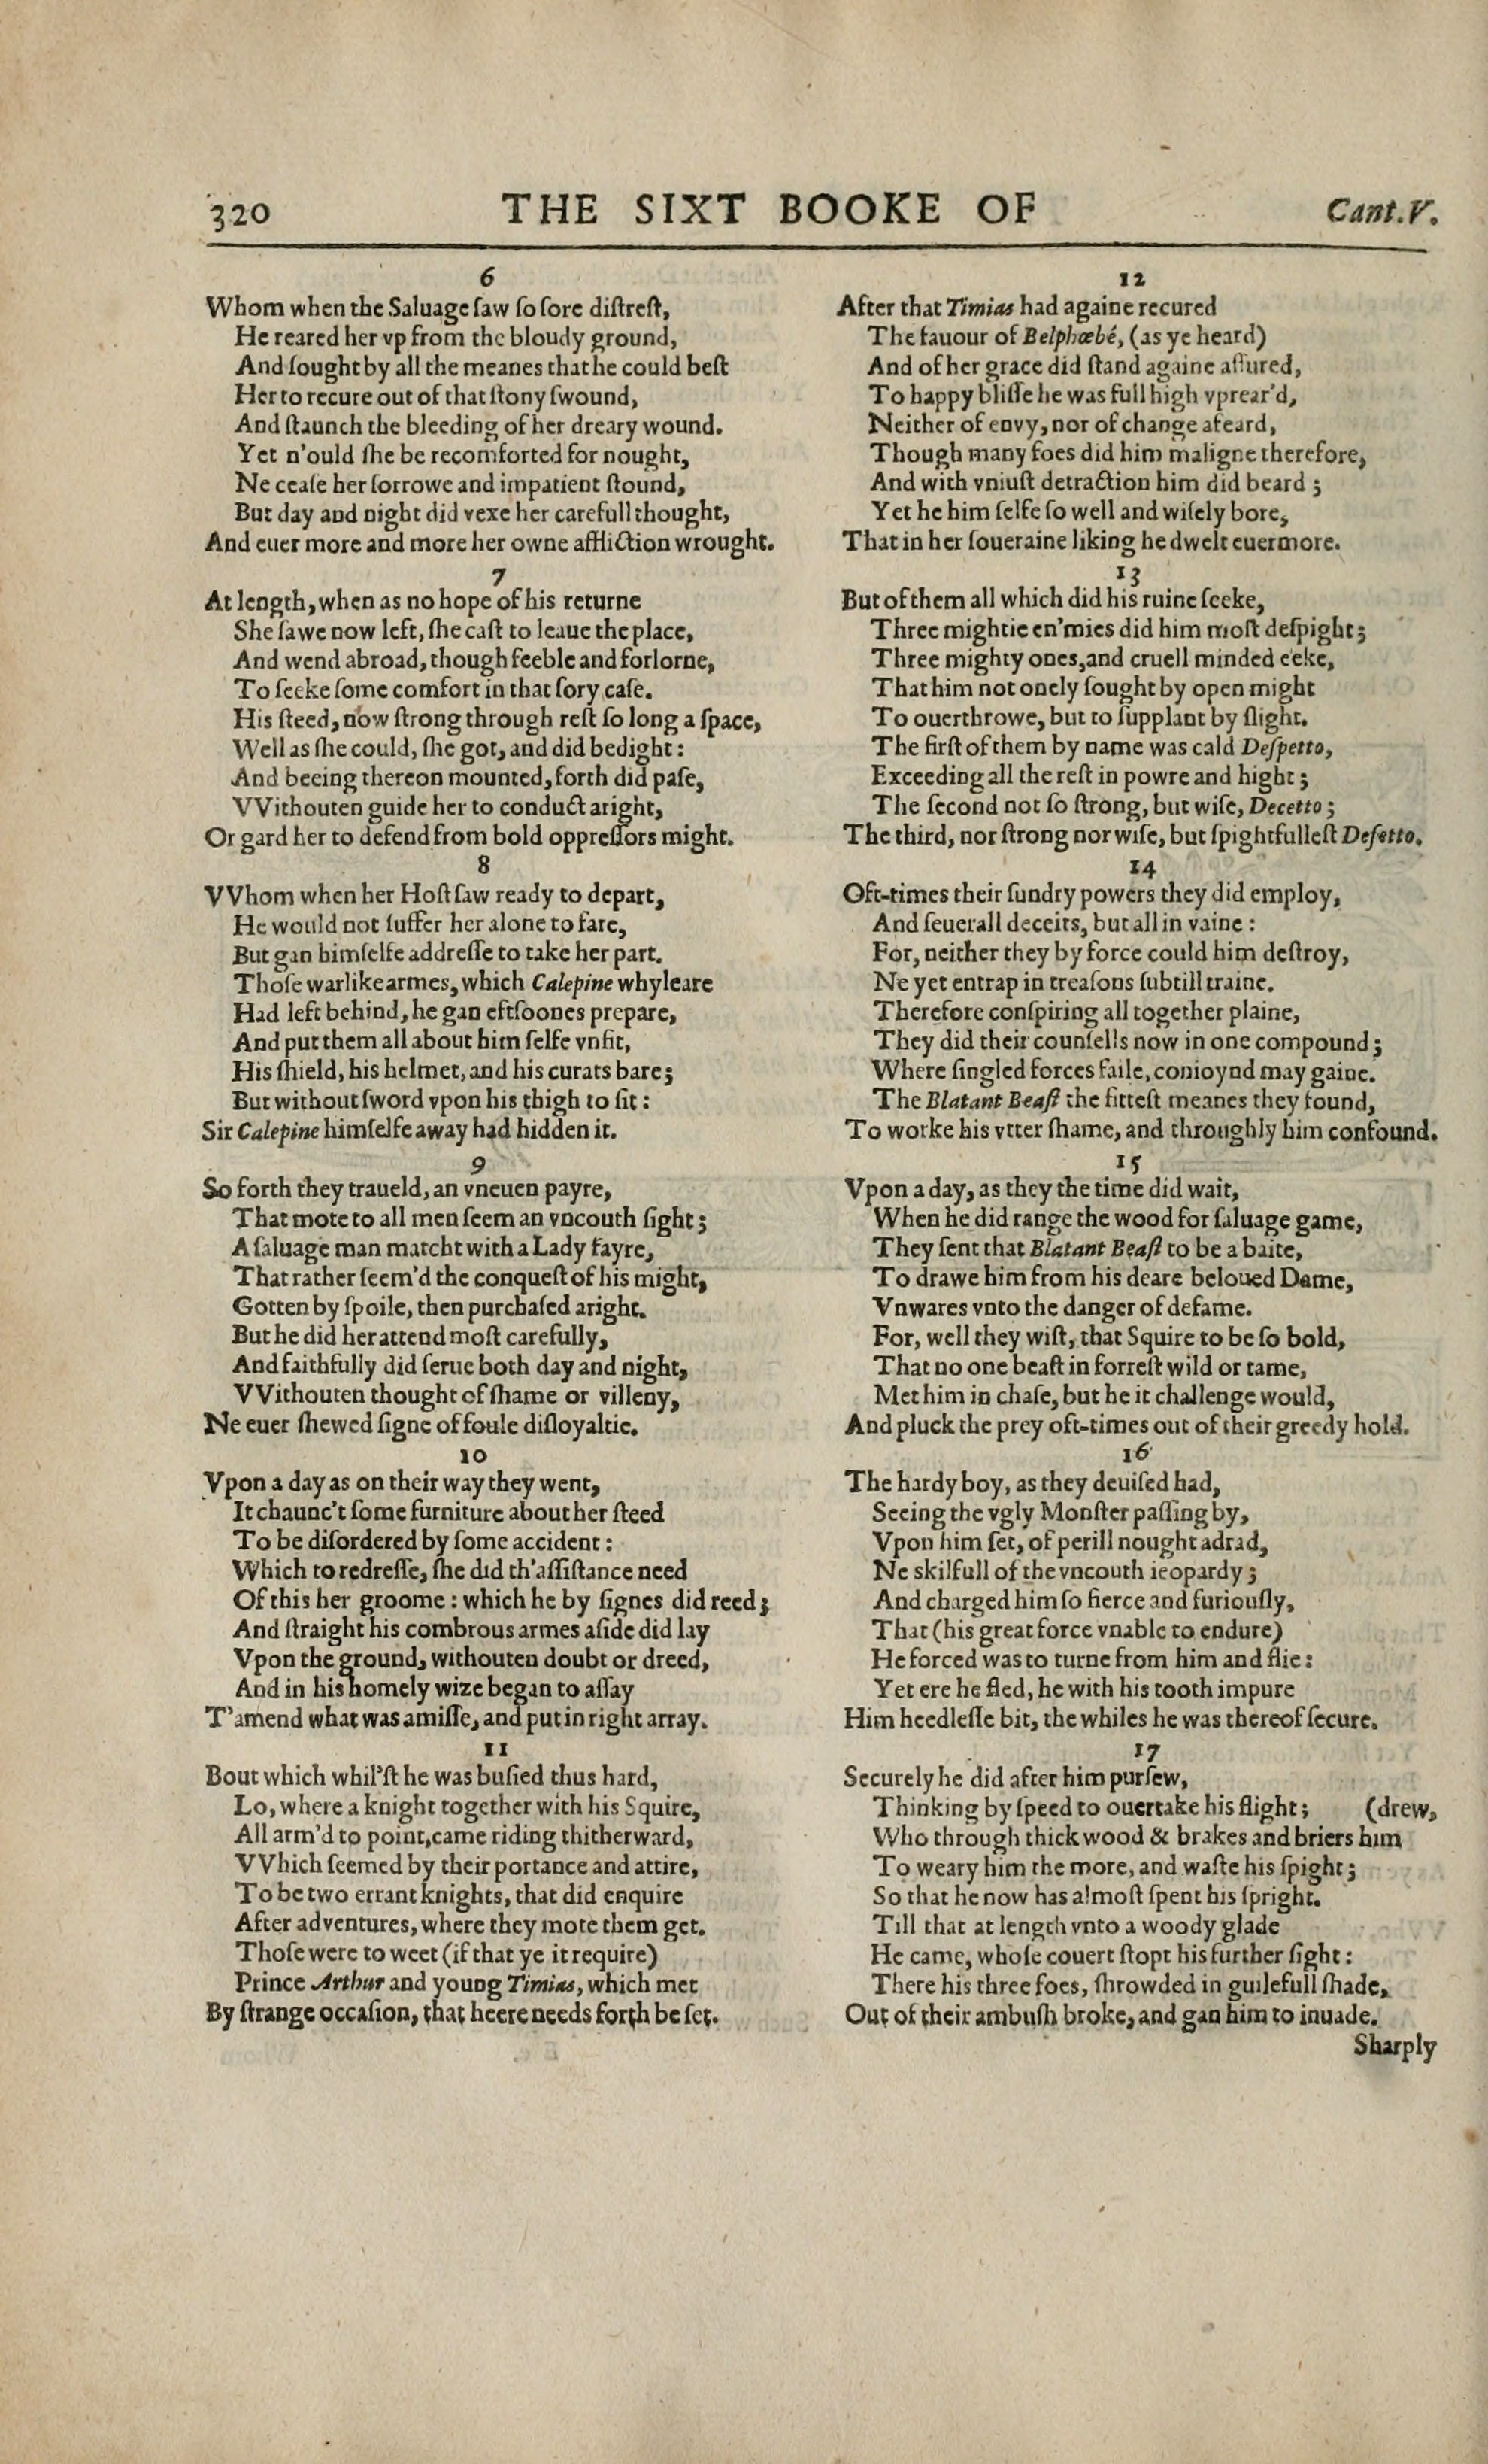 320 THE SIXT BOOKE OF Cant.V.
6
Whom when the Saluage ſaw ſo ſore diſtreſt,
He reared her vp from the bloudy ground,
And ſought by all the meanes that he could beſt
Her to recure out of that ſtony ſwound,
And ſtaunch the bleeding of her dreary wound.
Yet n'ould ſhe be recomforted for nought,
Ne ceaſe her ſorrowe and impatient ſtound,
But day and night did vexe her carefull thought,
And euer more and more her owne affliction wrought.
7
At length, when as no hope of his returne
She ſawe now left, ſhe caſt to leaue the place,
And wend abroad, though feeble and forlorne,
To ſeeke ſome comfort in that ſory caſe.
His ſteed, now ſtrong through reſt ſo long a ſpace,
Well as ſhe could, ſhe got, and did bedight:
And beeing thereon mounted, forth did paſe,
VVithouten guide her to conduct aright,
Or gard her to defend from bold oppreſſors might.
8
VVhom when her Hoſt ſaw ready to depart,
He would not ſuffer her alone to fare,
But gan himſelfe addreſſe to take her part.
Thoſe warlike armes, which Calepine whyleare
Had left behind, he gan eftſoones prepare,
And put them all about him ſelfe vnfit,
His ſhield, his helmet, and his curats bare;
But without ſword vpon his thigh to ſit:
Sir Calepine himſelfe away had hidden it.
9
So forth they traueld, an vneuen payre,
That mote to all men ſeem an vncouth ſight;
A ſaluage man matcht with a Lady fayre,
That rather ſeem'd the conqueſt of his might,
Gotten by ſpoile, then purchaſed aright.
But he did her attend moſt carefully,
And faithfully did ſerue both day and night,
VVithouten thought of ſhame or villeny,
Ne euer ſhewed ſigne of foule diſloyaltie.
10
Vpon a day as on their way they went,
It chaunc't ſome furniture about her ſteed
To be diſordered by ſome accident:
Which to redreſſe, ſhe did th'aſſiſtance need
Of this her groome: which he by ſignes did reed;
And ſtraight his combrous armes aſide did lay
Vpon the ground, withouten doubt or dreed,
And in his homely wize began to aſſay
T'amend what was amiſſe, and put in right array.
11
Bout which whil'ſt he was buſied thus hard,
Lo, where a knight together with his Squire,
All arm'd to point, came riding thitherward,
VVhich ſeemed by their portance and attire,
To be two errant knights, that did enquire
After adventures, where they mote them get.
Thoſe were to weet (if that ye it require)
Prince Arthur and young Timias, which met
By ſtrange occaſion, that heere needs forth be ſet.
12
After that Timias had againe recured
The fauour of Belphœbé, (as ye heard)
And of her grace did ſtand againe aſſured,
To happy bliſſe he was full high vprear'd,
Neither of envy, nor of change afeard,
Though many foes did him maligne therefore,
And with vniuſt detraction him did beard;
Yet he him ſelfe ſo well and wiſely bore,
That in her ſoueraine liking he dwelt euermore.
13
But of them all which did his ruine ſeeke,
Three mightie en'mies did him moſt deſpight;
Three mighty ones, and cruell minded eeke,
That him not onely ſought by open might
To ouerthrowe, but to ſupplant by ſlight.
The firſt of them by name was cald Deſpetto,
Exceeding all the reſt in powre and hight;
The ſecond not ſo ſtrong, but wiſe, Decetto;
The third, nor ſtrong nor wiſe, but ſpightfulleſt Defetto.
14
Oft-times their ſundry powers they did employ,
And ſeuerall deceits, but all in vaine:
For, neither they by force could him deſtroy,
Ne yet entrap in treaſons ſubtill traine.
Therefore conſpiring all together plaine,
They did their counſells now in one compound;
Where ſingled forces faile, conioynd may gaine.
The Blatant Beaſt the fitteſt meanes they found,
To worke his vtter ſhame, and throughly him confound.
15
Vpon a day, as they the time did wait,
When he did range the wood for ſaluage game,
They ſent that Blatant Beaſt to be a baite,
To drawe him from his deare beloued Dame,
Vnwares vnto the danger of defame.
For, well they wiſt, that Squire to be ſo bold,
That no one beaſt in forreſt wild or tame,
Met him in chaſe, but he it challenge would,
And pluck the prey oft-times out of their greedy hold.
16
The hardy boy, as they deuiſed had,
Seeing the vgly Monſter paſſing by,
Vpon him ſet, of perill nought adrad,
Ne skilfull of the vncouth ieopardy;
And charged him ſo fierce and furiouſly,
That (his great force vnable to endure)
He forced was to turne from him and flie:
Yet ere he fled, he with his tooth impure
Him heedleſſe bit, the whiles he was thereof ſecure.
17
Securely he did after him purſew,
Thinking by ſpeed to ouertake his flight; (drew,
Who through thick wood & brakes and briers him
To weary him the more, and waſte his ſpight;
So that he now has almoſt ſpent his ſpright.
Till that at length vnto a woody glade
He came, whoſe couert ſtopt his further ſight:
There his three foes, ſhrowded in guilefull ſhade,
Out of their ambuſh broke, and gan him to inuade.
Sharply